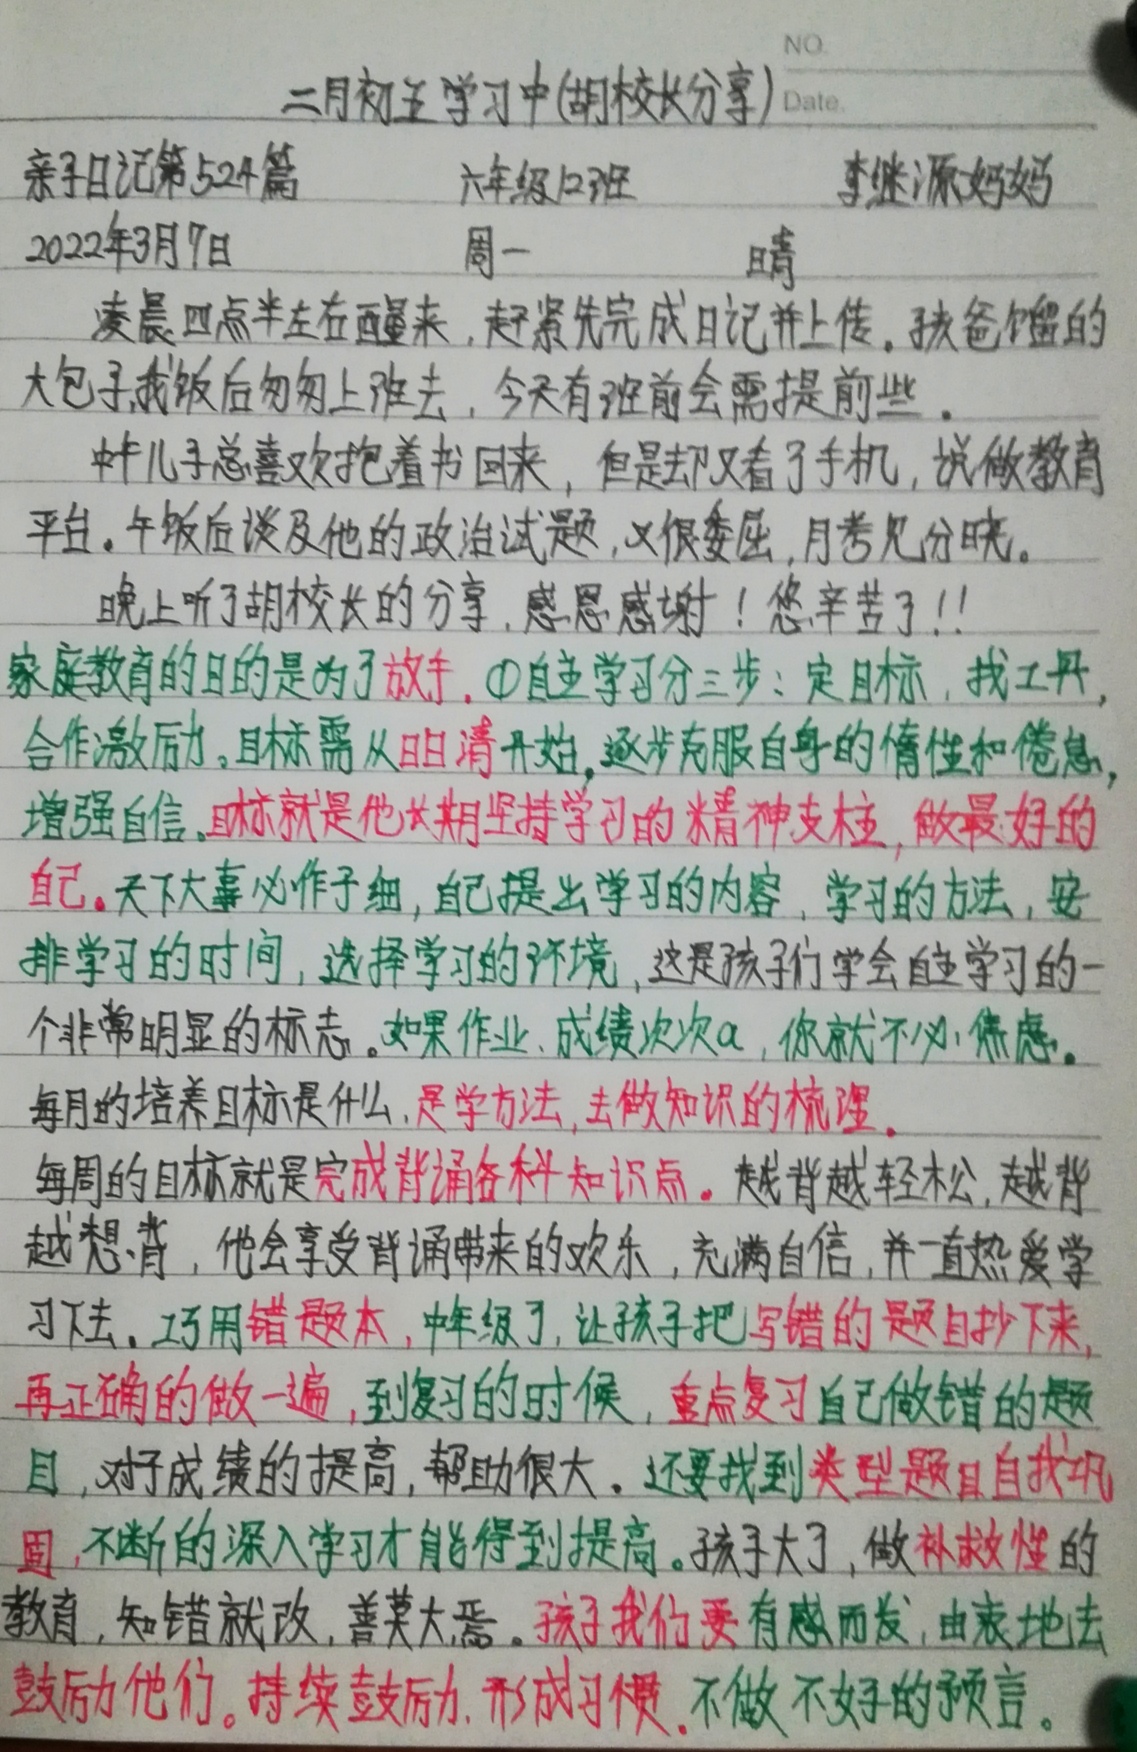 NO.
二月初五学习中(胡校长分享)
Date.
亲子日记第524篇 六年级12班 李继源妈妈
2022年3月7日 周一 晴
凌晨四点半左右醒来,赶紧先完成日记并上传。孩爸馏的
大包子,我饭后匆匆上班去,今天有班前会需提前些。
中午儿子总喜欢抱着书回来,但是却又看了手机,说做教育
平台。午饭后谈及他的政治试题,又很委屈,月考见分晓。
晚上听了胡校长的分享,感恩感谢!您辛苦了!!
家庭教育的目的是为了放手。①自主学习分三步:定目标,找工具,
合作激励力。目标需从日日清开始,逐步克服自身的惰性和倦怠,
增强自信。目标就是他长期坚持学习的精神支柱,做最好的
自己。天下大事必作于细,自己提出学习的内容,学习的方法,安
排学习的时间,选择学习的环境,这是孩子们学会自主学习的一
个非常明显的标志。如果作业、成绩次次a,你就不必焦虑。
每月的培养目标是什么,是学方法,去做知识的梳理。
每周的目标就是完成背诵各科知识点。越背越轻松,越背
越想背,他会享受背诵带来的欢乐,充满自信,并一直热爱学
习下去。巧用错题本,中年级了,让孩子把写错的题目抄下来,
再正确的做一遍,到复习的时候,重点复习自己做错的题
目,对于成绩的提高,帮助很大。还要找到类型题目自我巩
固,不断的深入学习才能得到提高。孩子大了,做补救性的
教育,知错就改,善莫大焉。孩子我们要有感而发,由衷地去
鼓励他们。持续鼓励,形成习惯。不做不好的预言。